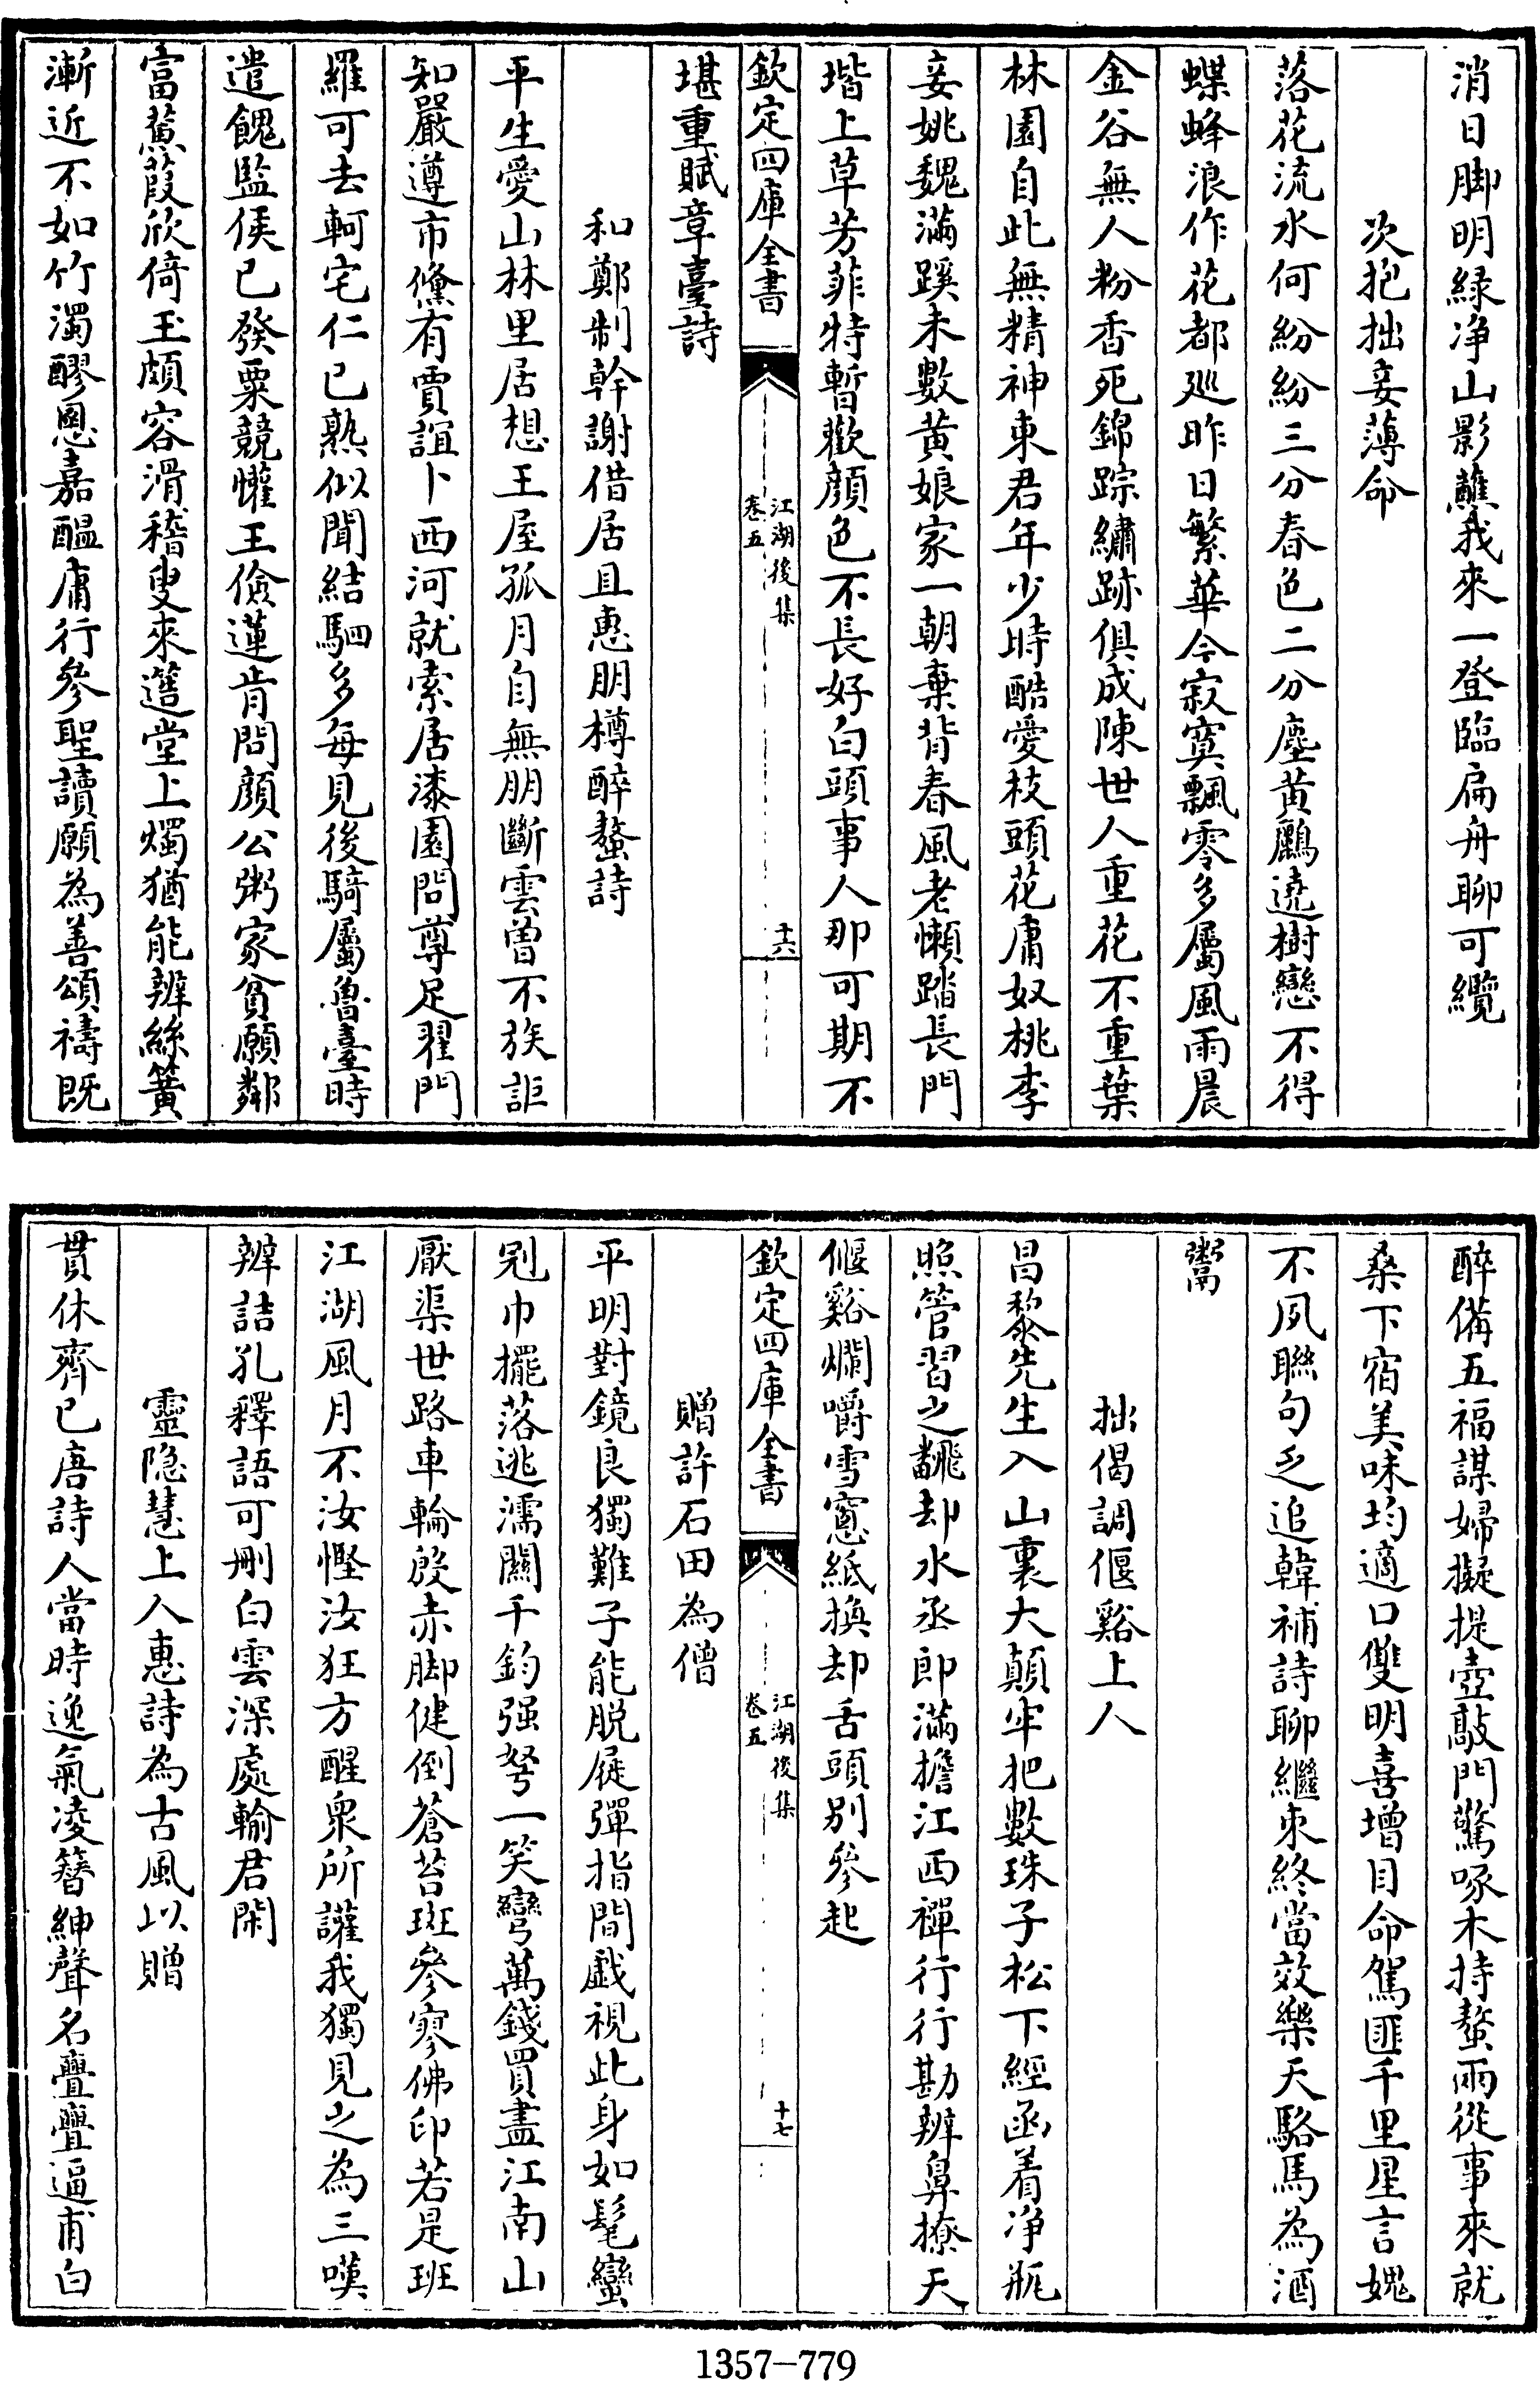 消日脚明緑净山影蘸我來一登臨扁舟聊可纜
次抱拙妾薄命
落花流水何紛紛三分春色二分塵黄鸝遶樹戀不得
蝶蜂浪作花都廵昨日繁華今寂寞飄零多屬風雨晨
金谷無人粉香死錦踪繡跡俱成陳世人重花不重葉
林園自此無精神東君年少時酷愛枝頭花庸奴桃李
妾姚魏滿蹊未數黄娘家一朝棄背春風老懶踏長門
堦上草芳菲特暫歡顔色不長好白頭事人那可期不
欽定四庫全書
江湖後集
卷五
十六
堪重賦章臺詩
和鄭制幹謝借居且惠朋樽醉螯詩
平生愛山林里居想王屋孤月自無朋斷雲曽不族詎
知嚴遵市儵有賈誼卜西河就索居漆園問尊足翟門
羅可去軻宅仁已熟似聞結駟多每見後騎屬魯臺時
遣餽監侯已發粟競懽王儉蓮肯問顔公粥家貧願鄰
富蒹葭欣倚玉頗容滑稽叟來簉堂上燭猶能辨絲簧
漸近不如竹濁醪恩嘉醖庸行參聖讀願為善頌禱既
醉備五福謀婦擬提壺敲門驚啄木持螯兩從事來就
桑下宿美味均適口雙明喜增目命駕匪千里星言媿
不夙聯句乏追韓補詩聊繼朿終當效樂天駱馬為酒
鬻
拙偈調偃谿上人
昌黎先生入山裏大顛牢把數珠子松下經函着净瓶
照管習之飜却水丞郎滿擔江西禪行行勘辨鼻撩天
偃谿爛嚼雪窓紙換却舌頭别參起
欽定四庫全書
江湖後集
卷五
十七
贈許石田為僧
平明對鏡良獨難子能脱屣彈指間戲視此身如髦蠻
剜巾擺落逃濡關千鈞强弩一笑彎萬錢買盡江南山
厭渠世路車輪殷赤脚健倒蒼苔斑參寥佛印若是班
江湖風月不汝慳汝狂方醒衆所讙我獨見之為三嘆
辨詰孔釋語可刪白雲深處輸君閑
靈隐慧上人惠詩為古風以贈
貫休齊已唐詩人當時逸氣凌簪紳聲名亹亹逼甫白
1357-779